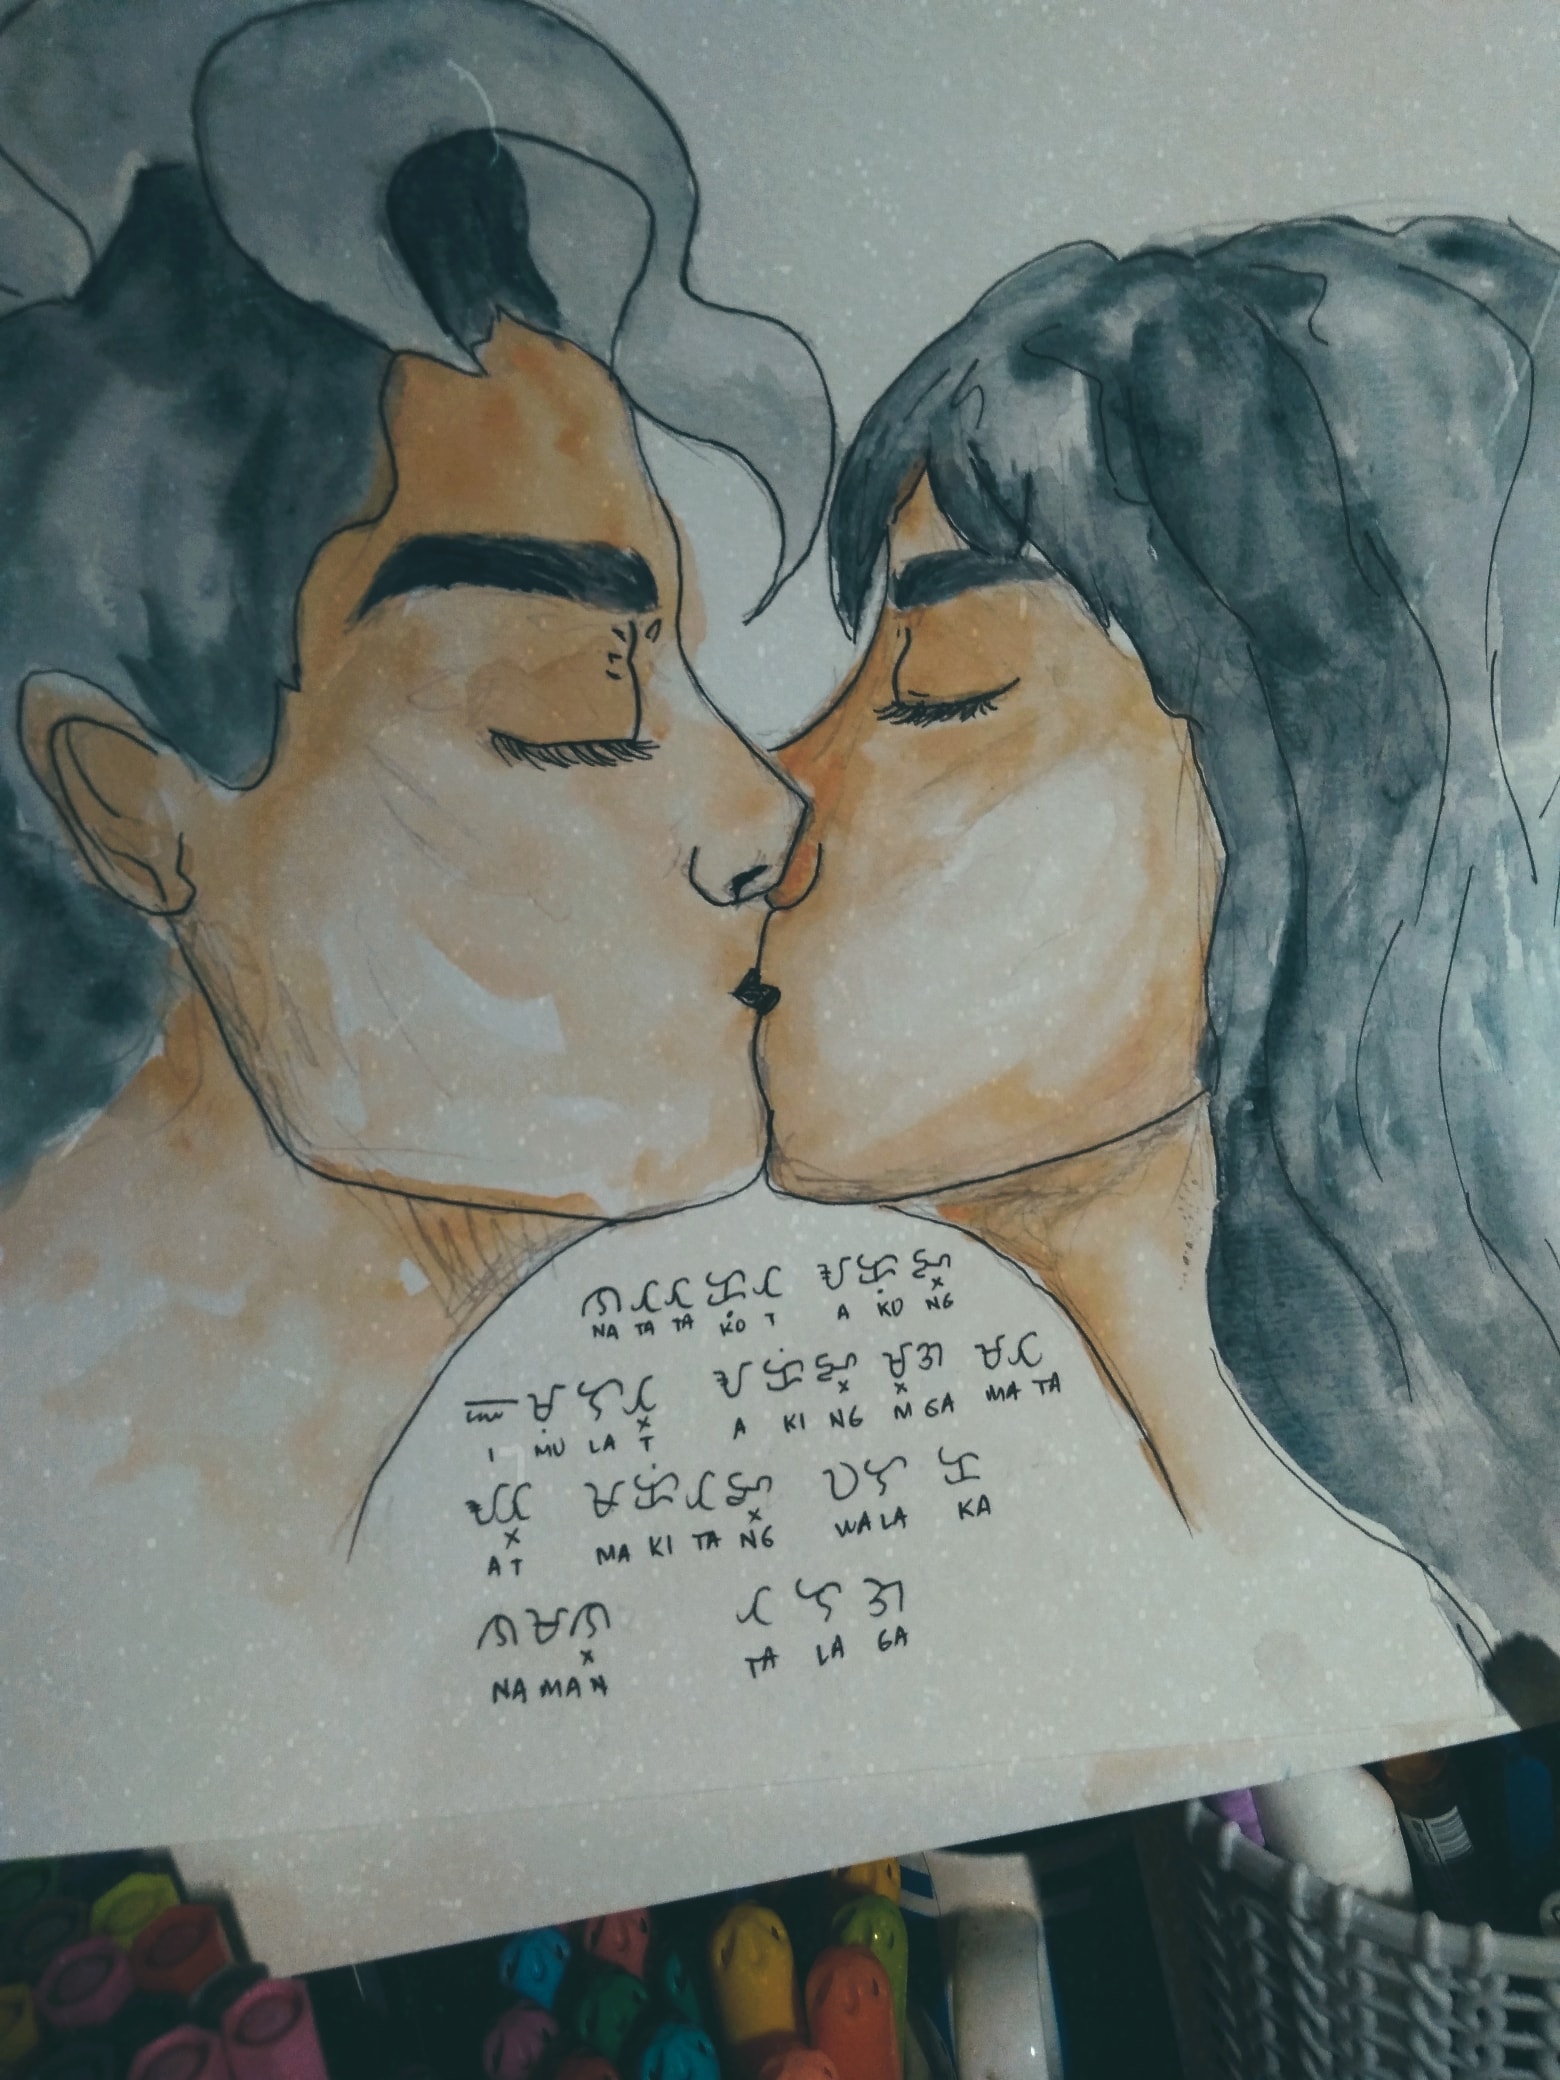 ᜈᜆᜆᜃᜓᜆ ᜀᜃᜓᜅ᜔
NA TA TA KO T A KO NG
ᜁᜋᜓᜎᜆ᜔ ᜀᜃᜒᜅ᜔ ᜋ᜔ᜄ ᜋᜆ
I MU LA T A KI NG M GA MA TA
ᜀᜆ᜔ ᜋᜃᜒᜆᜅ᜔ ᜏᜎ ᜃ
A T MA KI TA NG WA LA KA
ᜈᜋᜈ᜔ ᜆᜎᜄ
NA MA N TA LA GA